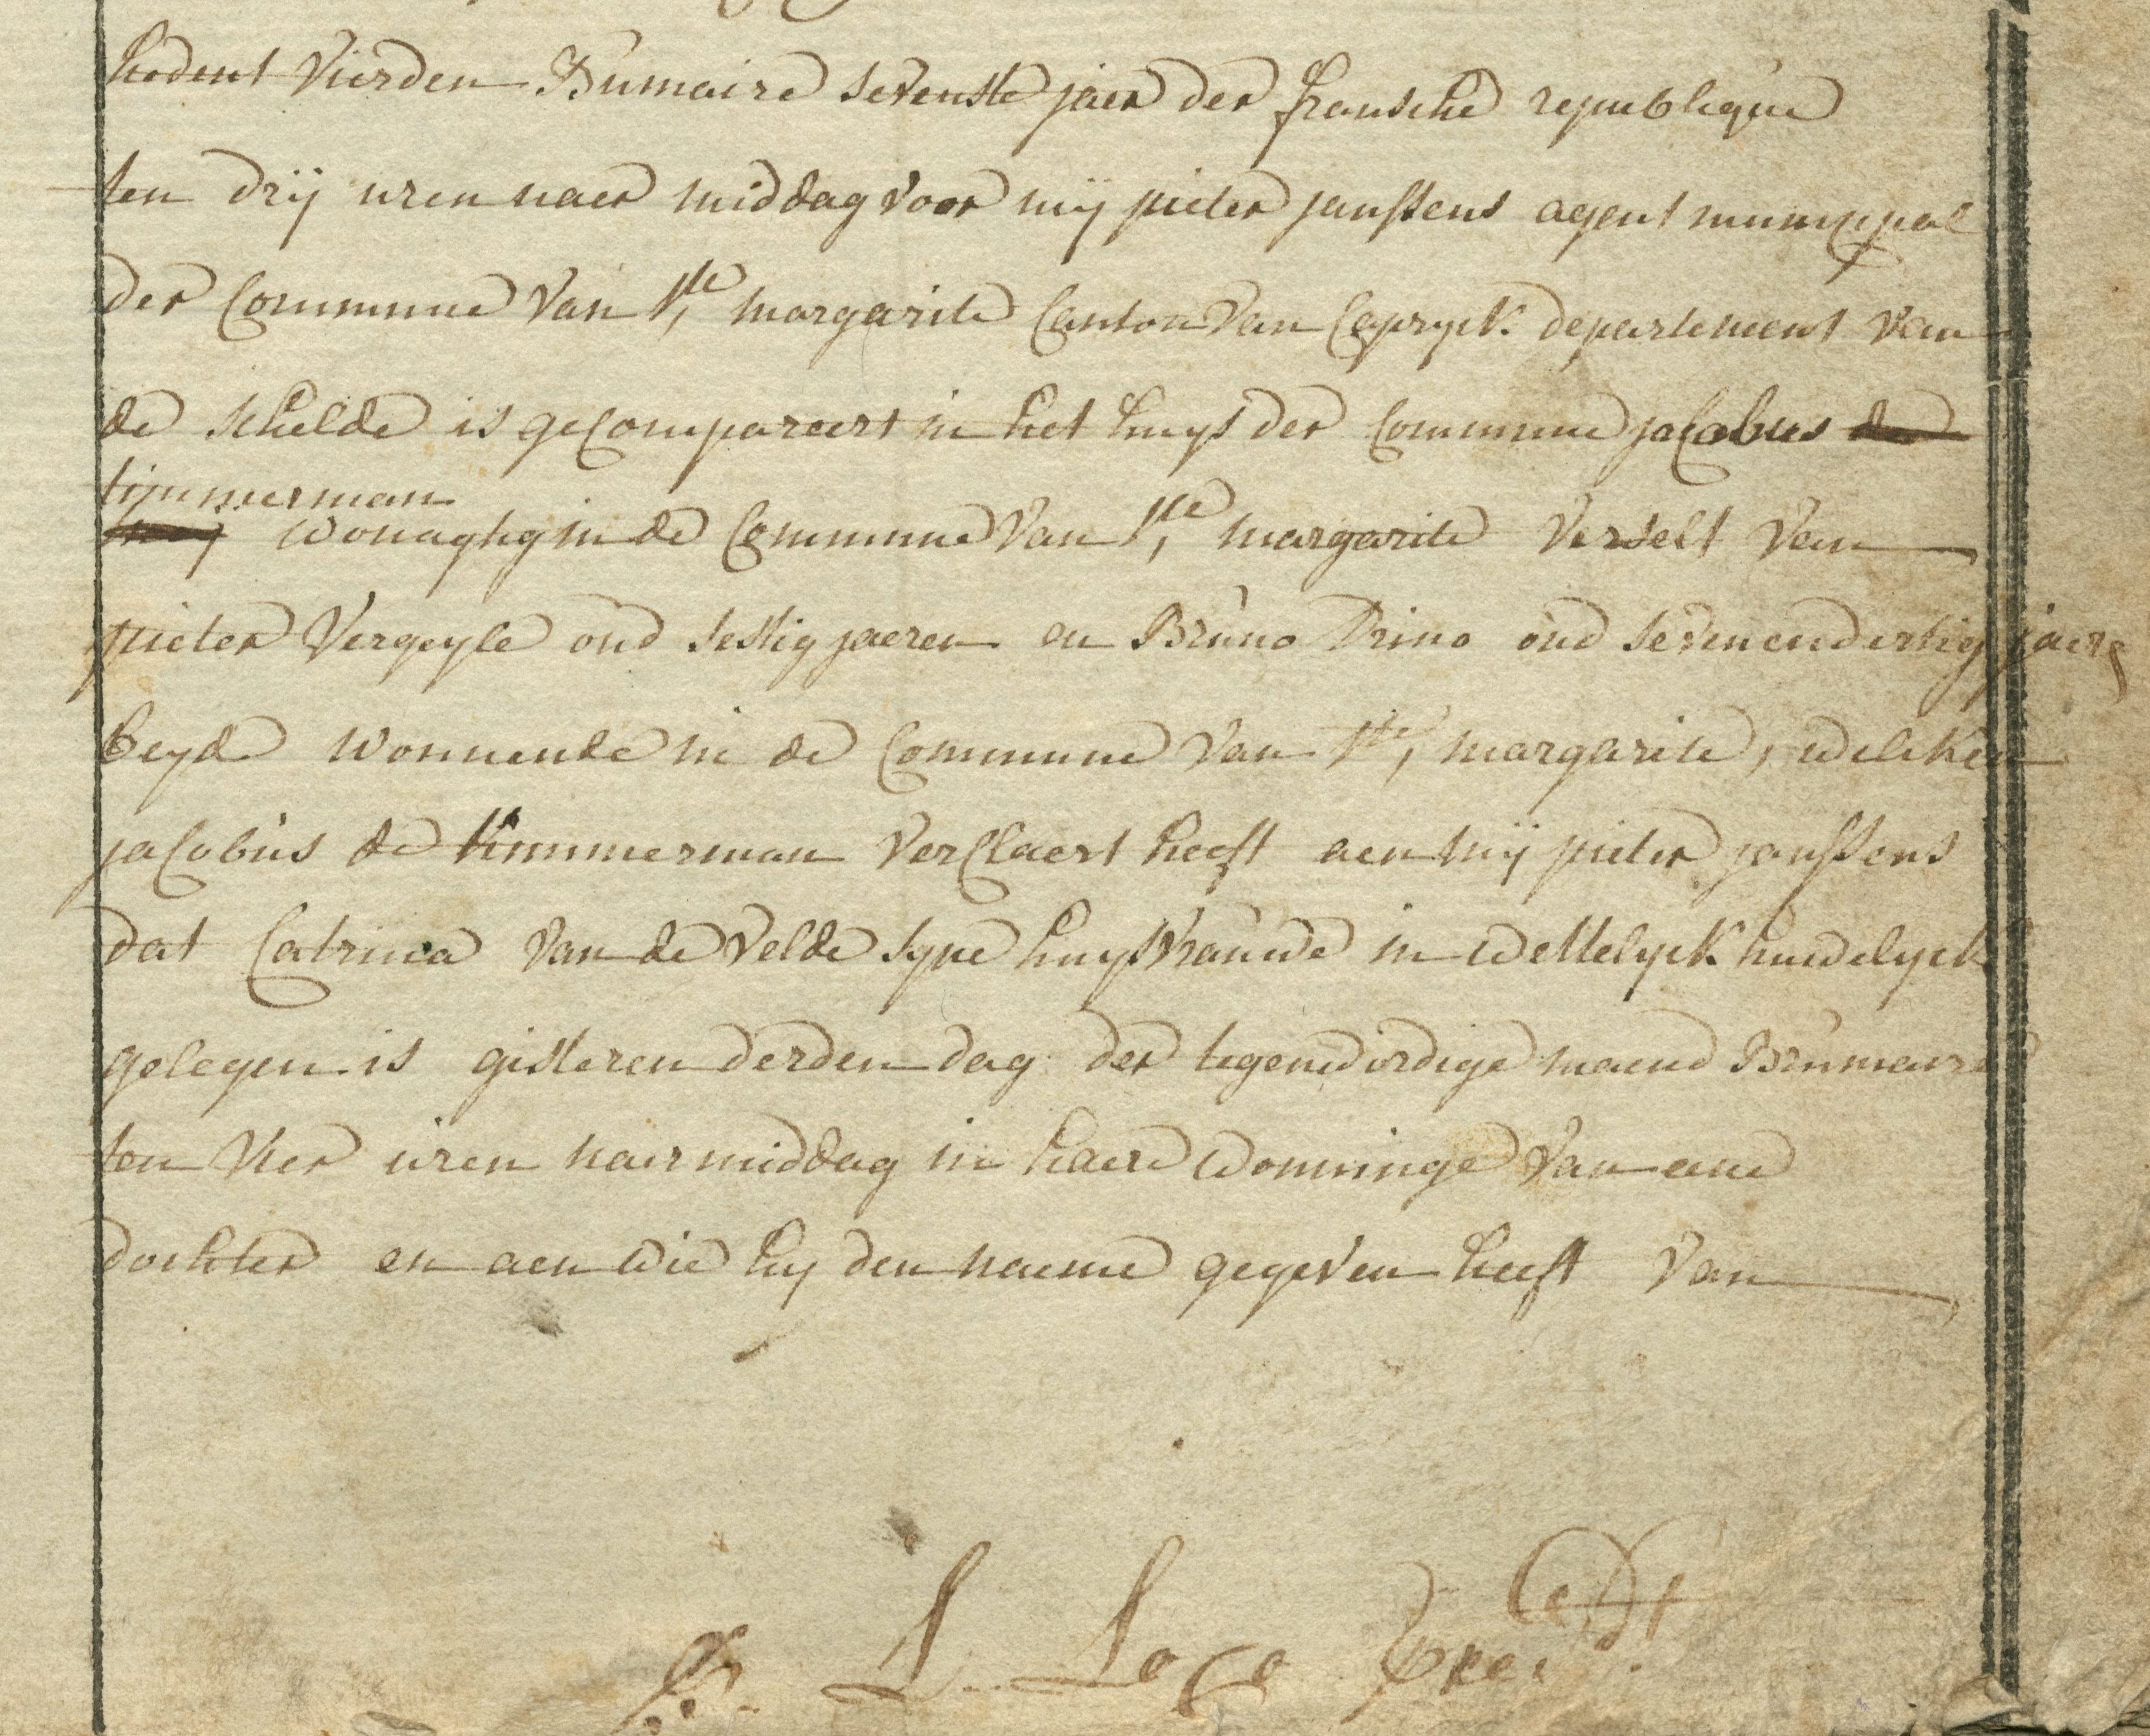 hedent Vierden Bumaire sevenste jaer der fransche republique
ten drÿ uren naer middag voor mÿ pieter janssens agent municipal
der Commune Van Ste, margarite Canton Van Capryck departement Van
de schelde is gecompareert in het huys der Commune jacobus de
timmerman
wonaghg in de Commune Van Ste, margarite Verselt Van
pieter Vergeyle oud sestig jaeren en Bruno Drino oud sevenendertig jaere
beyde wonnende in de Commune Van Ste, margarite, welcken
jacobus de timmerman Verclaert heeft aen mÿ pieter janssens
dat Catrina Van de Velde syne huysvrauwe in wettelyck huwelyck
gelegen is gisteren derden dag der tegenwordige maend Brumaire
ten Vier uren naermiddag in haere wonninge Van eene
dochter en aen wie hy den naeme gegeven heeft Van
L. Loco